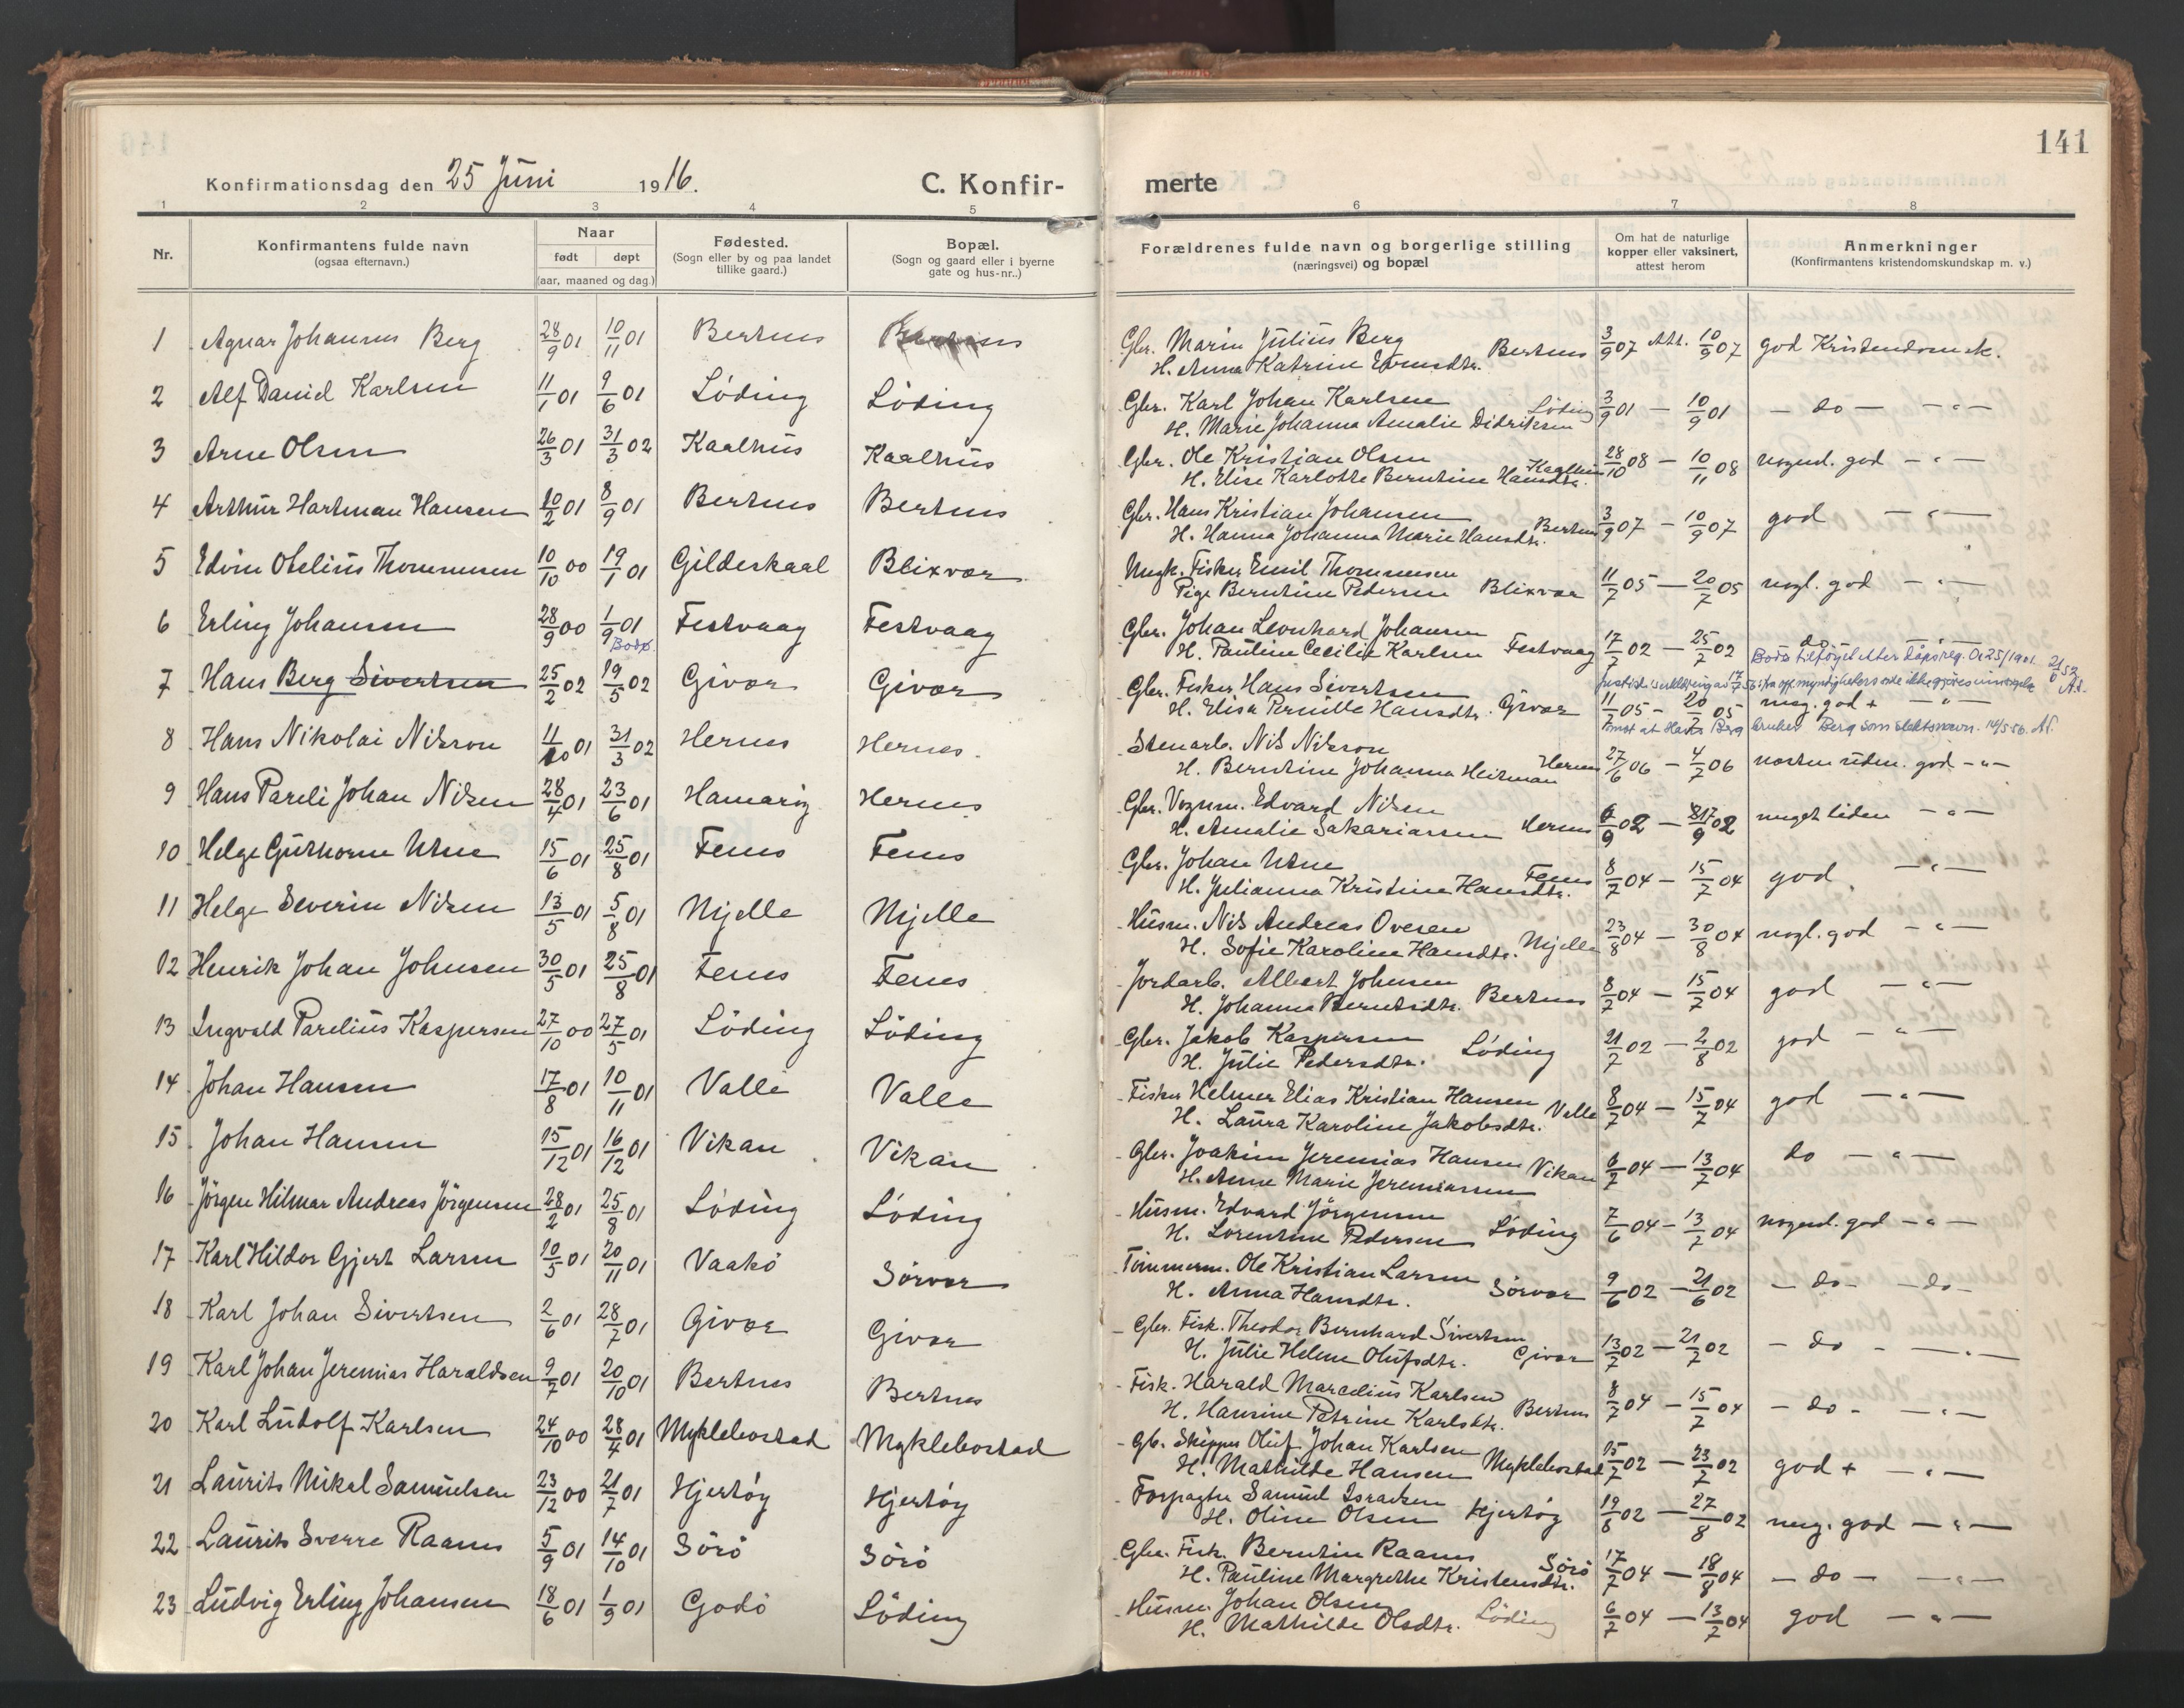 141
Konfirmationsdag den 25 Juni 1916.
C. Konfir-
merte
1 2 3 4 5 6 7 8
Nr.
Konfirmantens fulde navn
(ogsaa efternavn.)
Naar
født døpt
(aar, maaned og dag.)
Fødested.
(Sogn eller by og paa landet
tillike gaard.)
Bopæl.
(Sogn og gaard eller i byerne
gate og hus-nr..)
Forældrenes fulde navn og borgerlige stilling
(næringsvei) og bopæl
Om hat de naturlige
kopper eller vaksinert,
attest herom
Anmerkninger
(Konfirmantens kristendomskundskap m. v.)
1 Agnar Johannes Berg 28/9 01 10/11 01 Bertnes Bertnes Gbr. Marin Julius Berg
H. Anna Katrine Evensdtr. Bertnes 3/9 07 Att. 10/9 07 god Kristendomsk.
2 Alf Daniel Karlsen 11/1 01 9/6 01 Löding Löding Gbr. Karl Johan Karlsen
H. Marie Johanna Amalie Didriksen Löding 3/9 01 — 10/9 01 — do — — " —
3 Arne Olsen 26/3 01 31/3 02 Kaalhus Kaalhus Gbr. Ole Kristian Olsen
H. Elise Karlotte Berntine Hansdtr. Kaalhus 28/10 08 — 10/11 08 nogenl. god — " —
4 Arthur Hartman Hansen 10/2 01 8/9 01 Bertnes Bertnes Gbr. Hans Kristian Johansen
H. Hanna Johanna Marie Hansdtr. Bertnes 3/9 07 — 10/9 07 god — " —
5 Edvin Otelius Thommesen 10/10 00 19/1 01 Gildeskaal Blixvær Ungk. Fisker Emil Thommesen
Pige Berntine Pedersen Blixvær 11/7 05 — 20/7 05 nogl. god — " —
6 Erling Johansen 28/9 00 1/9 01 Festvaag Festvaag Gbr. Johan Leonhard Johansen
H. Pauline Cecilie Karlsen Festvaag 17/7 02 — 25/7 02 do — " —
Bodø
Bodø tilføyet etter dåpsreg. 25/1901
7 Hans Berg Sivertsen 25/2 02 19/5 02 Givær Givær Gbr. Fisker Hans Sivertsen
H. Elisa Pernille Hansdtr. Givær 11/7 05 - 20/7 05 meg. god + — " —
imot at Hans Berg bruker Berg som slektsnavn.
8 Hans Nikolai Nilsson 11/10 01 31/3 02 Hernes Hernes. Stenarb. Nils Nilsson
H. Berntine Johanna Heitman Hernes 27/6 06 — 4/7 06 næsten uden. god — " —
9 Hans Pareli Johan Nilsen 28/4 01 23/6 01 Hamarøy Hernes Gbr. Vognm. Edvard Nilsen
H. Amalie Sakariassen Hernes 6/9 02 — 17/9 02 meget liden — " —
10 Helge Guthorm Utne 15/6 01 25/8 01 Fenes Fenes Gbr. Johan Utne
H. Julianna Kristine Hansdtr. Fenes 8/7 04 — 15/7 04 god — " —
11 Helge Severin Nilsen 13/5 01 5/8 01 Mjelle Mjelle Husm. Nils Andreas Ovesen
H. Sofie Karoline Hansdtr. Mjelle 23/8 04 — 30/8 04 nogl. god — " —
12 Henrik Johan Johnsen 30/5 01 25/8 01 Fenes Fenes Jordarb. Albert Johnsen
H. Johanna Berntsdtr. Bertnes 8/7 04 — 15/7 04 god — " —
13 Ingvald Parelius Kaspersen 27/10 00 27/5 01 Löding Löding Gbr. Jakob Kaspersen
H. Julie Pedersdtr. Löding 21/7 02 — 2/8 02 god — " —
14 Johan Hansen 17/8 01 10/11 01 Valle Valle Fisker Helmer Elias Kristian Hansen
H. Laura Karoline Jakobsdtr. Valle 8/7 04 — 15/7 04 god — " —
15 Johan Hansen 15/12 01 16/12 01 Vikan Vikan Gbr. Joakim Jeremias Hansen
H. Anne Marie Jeremiassen Vikan 6/7 04 — 13/7 04 do — " —
16 Jörgen Hilmar Andreas Jörgensen 28/2 01 25/8 01 Löding Löding Husm. Edvard Jörgensen
H. Lorentine Pedersen Löding 7/6 04 — 13/7 04 nogenl. god — " —
17 Karl Hildor Gjert Larsen 10/5 01 20/11 01 Vaakö Sörvær Tömmerm. Ole Kristian Larsen
H. Anna Hansdtr. Sörvær 9/6 02 — 21/6 02 — do — — do —
18 Karl Johan Sivertsen 2/6 01 28/7 01 Givær Givær Gbr. Fisk. Theodor Bernhard Sivertsen
H. Julie Helene Olufsdtr. Givær 13/7 02 — 21/7 02 — do — — " —
19 Karl Johan Jeremias Haraldsen 9/7 01 20/10 01 Bertnes Bertnes Fisk. Harald Marcelius Karlsen
H. Hansine Petrine Karlsdtr. Bertnes 8/7 04 — 15/7 04 — do — — " —
20 Karl Ludolf Karlsen 24/10 00 28/4 01 Myklebostad Myklebostad Gb. Skipper Oluf Johan Karlsen
H. Mathilde Hansen Myklebostad 15/7 02 — 23/7 02 god + — " —
21 Laurits Mikal Samuelsen 23/12 00 21/7 01 Hjertöy Hjertöy Forpagter Samuel Israelsen
H. Oline Olsen Hjertöy 19/8 02 — 27/8 02 meg. god — " —
22 Laurits Sverre Raanes 5/9 01 14/10 01 Sörö Sörö Gbr. Fisk. Berntin Raanes
H. Pauline Margrethe Kristensdtr. Sörö 17/7 04 — 18/8 04 — do — — " —
23 Ludvig Erling Johansen 18/6 01 1/9 01 Godö Löding Husm. Johan Olsen
H. Mathilde Olsdtr. Löding 6/7 04 — 13/7 04 god — " —